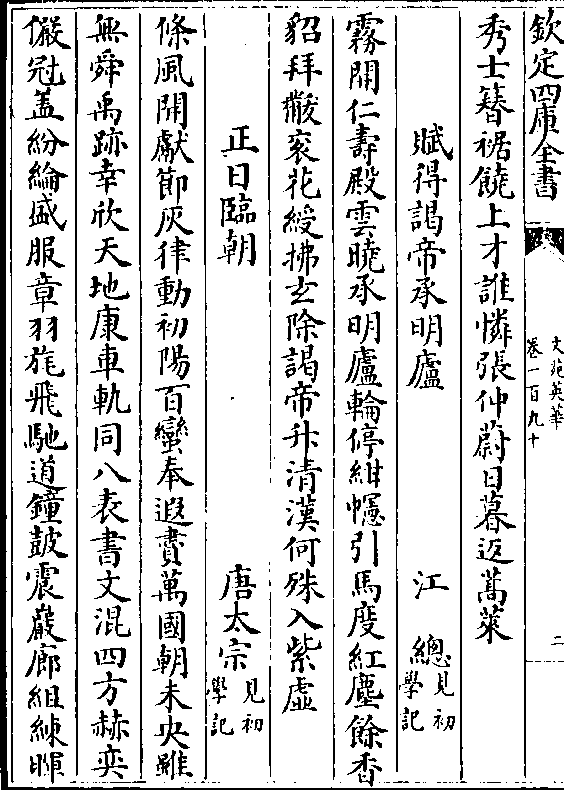 欽定四庫全書
文苑英華
卷一百九十
二
秀士簮裾饒上才誰憐張仲蔚日暮返蒿萊
賦得謁帝承明廬
江總
見初
學記
霧開仁壽殿雲曉承明廬輪停紺幰引馬度紅塵餘香
貂拜黻衮花綬拂玄除謁帝升清漢何殊入紫虛
正日臨朝
唐太宗
見初
學記
條風開獻節灰律動初陽百蠻奉遐賮萬國朝未央雖
無舜禹跡幸欣天地康車軌同八表書文混四方赫奕
儼冠葢紛綸盛服章羽旄飛馳道鐘皷震巖廊組練暉